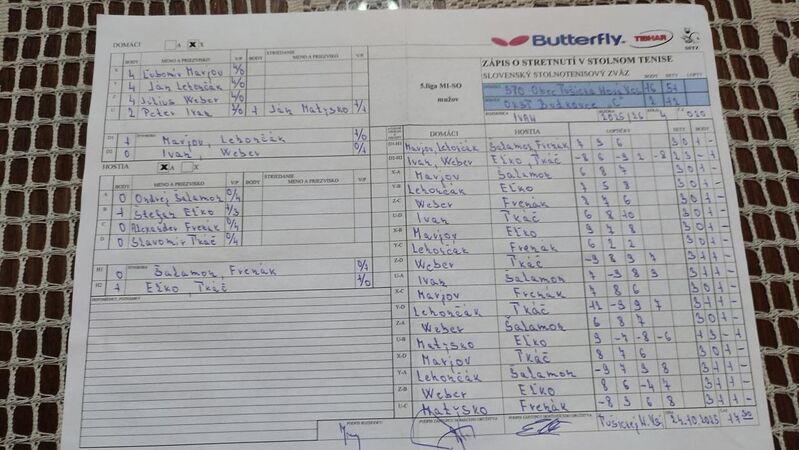 Butterfly
TIBHAR
SSTZ
DOMÁCI A X X
BODY MENO A PRIEZVISKO V/P BODY STRIEDANIE MENO A PRIEZVISKO V/P
X 4 Ľubomír Marjov 4/0
Y 4 Jan Lehončák 4/0
Z 4 Július Weber 4/0
U 2 Peter Ivan 2/0 1 Ján Matysko 1/1
D1 1 Marjov, Lehončák 1/0
D2 0 Ivan Weber 0/1
HOSTIA
BODY MENO A PRIEZVISKO V/P BODY STRIEDANIE MENO A PRIEZVISKO V/P
A 0 Ondrej Šalamon 0/4
B 1 Štefan Eľko 1/3
C 0 Alexander Freňák 0/4
D 0 Slavomír Tkáč 0/4
H1 0 Šalamon, Freňák 0/1
H2 1 Eľko Tkáč 1/0
ZÁPIS O STRETNUTÍ V STOLNOM TENISE
SLOVENSKÝ STOLNOTENISOVÝ ZVÄZ
5.liga MI-SO
mužov
BODY SETY LOPTY
STO Obec Tušická Nová Ves 16 51
OKST Budkovce "C" 2 12
IVAN 2025/26 4
DOMÁCI HOSTIA LOPTIČKY SETY BODY
D1-H1 Marjov, Lehončák Šalamon, Freňák 7 9 6 3 0 1 -
D2-H2 Ivan, Weber Eľko, Tkáč -8 6 -9 2 -8 2 3 - 1
X-A Marjov Šalamon 6 8 7 3 0 1 -
Y-B Lehončák Eľko 7 5 8 3 0 1 -
Z-C Weber Freňák 8 7 6 3 0 1 -
U-D Ivan Tkáč 6 8 10 3 0 1 -
X-B Marjov Eľko 9 7 8 3 0 1 -
Y-C Lehončák Freňák 6 2 2 3 0 1 -
Z-D Weber Tkáč -9 8 9 7 3 1 1 -
U-A Ivan Šalamon 7 -9 8 9 3 1 1 -
X-C Marjov Freňák 7 8 6 3 0 1 -
Y-D Lehončák Tkáč 11 -9 9 7 3 1 1 -
Z-A Weber Šalamon 6 8 7 3 0 1 -
U-B Matysko Eľko 9 -7 -8 -6 1 3 - 1
X-D Marjov Tkáč 8 7 6 3 0 1 -
Y-A Lehončák Šalamon -9 7 9 8 3 1 1 -
Z-B Weber Eľko 8 6 -4 7 3 1 1 -
U-C Matysko Freňák -8 9 6 8 3 1 1 -
24.10.2025 17 00